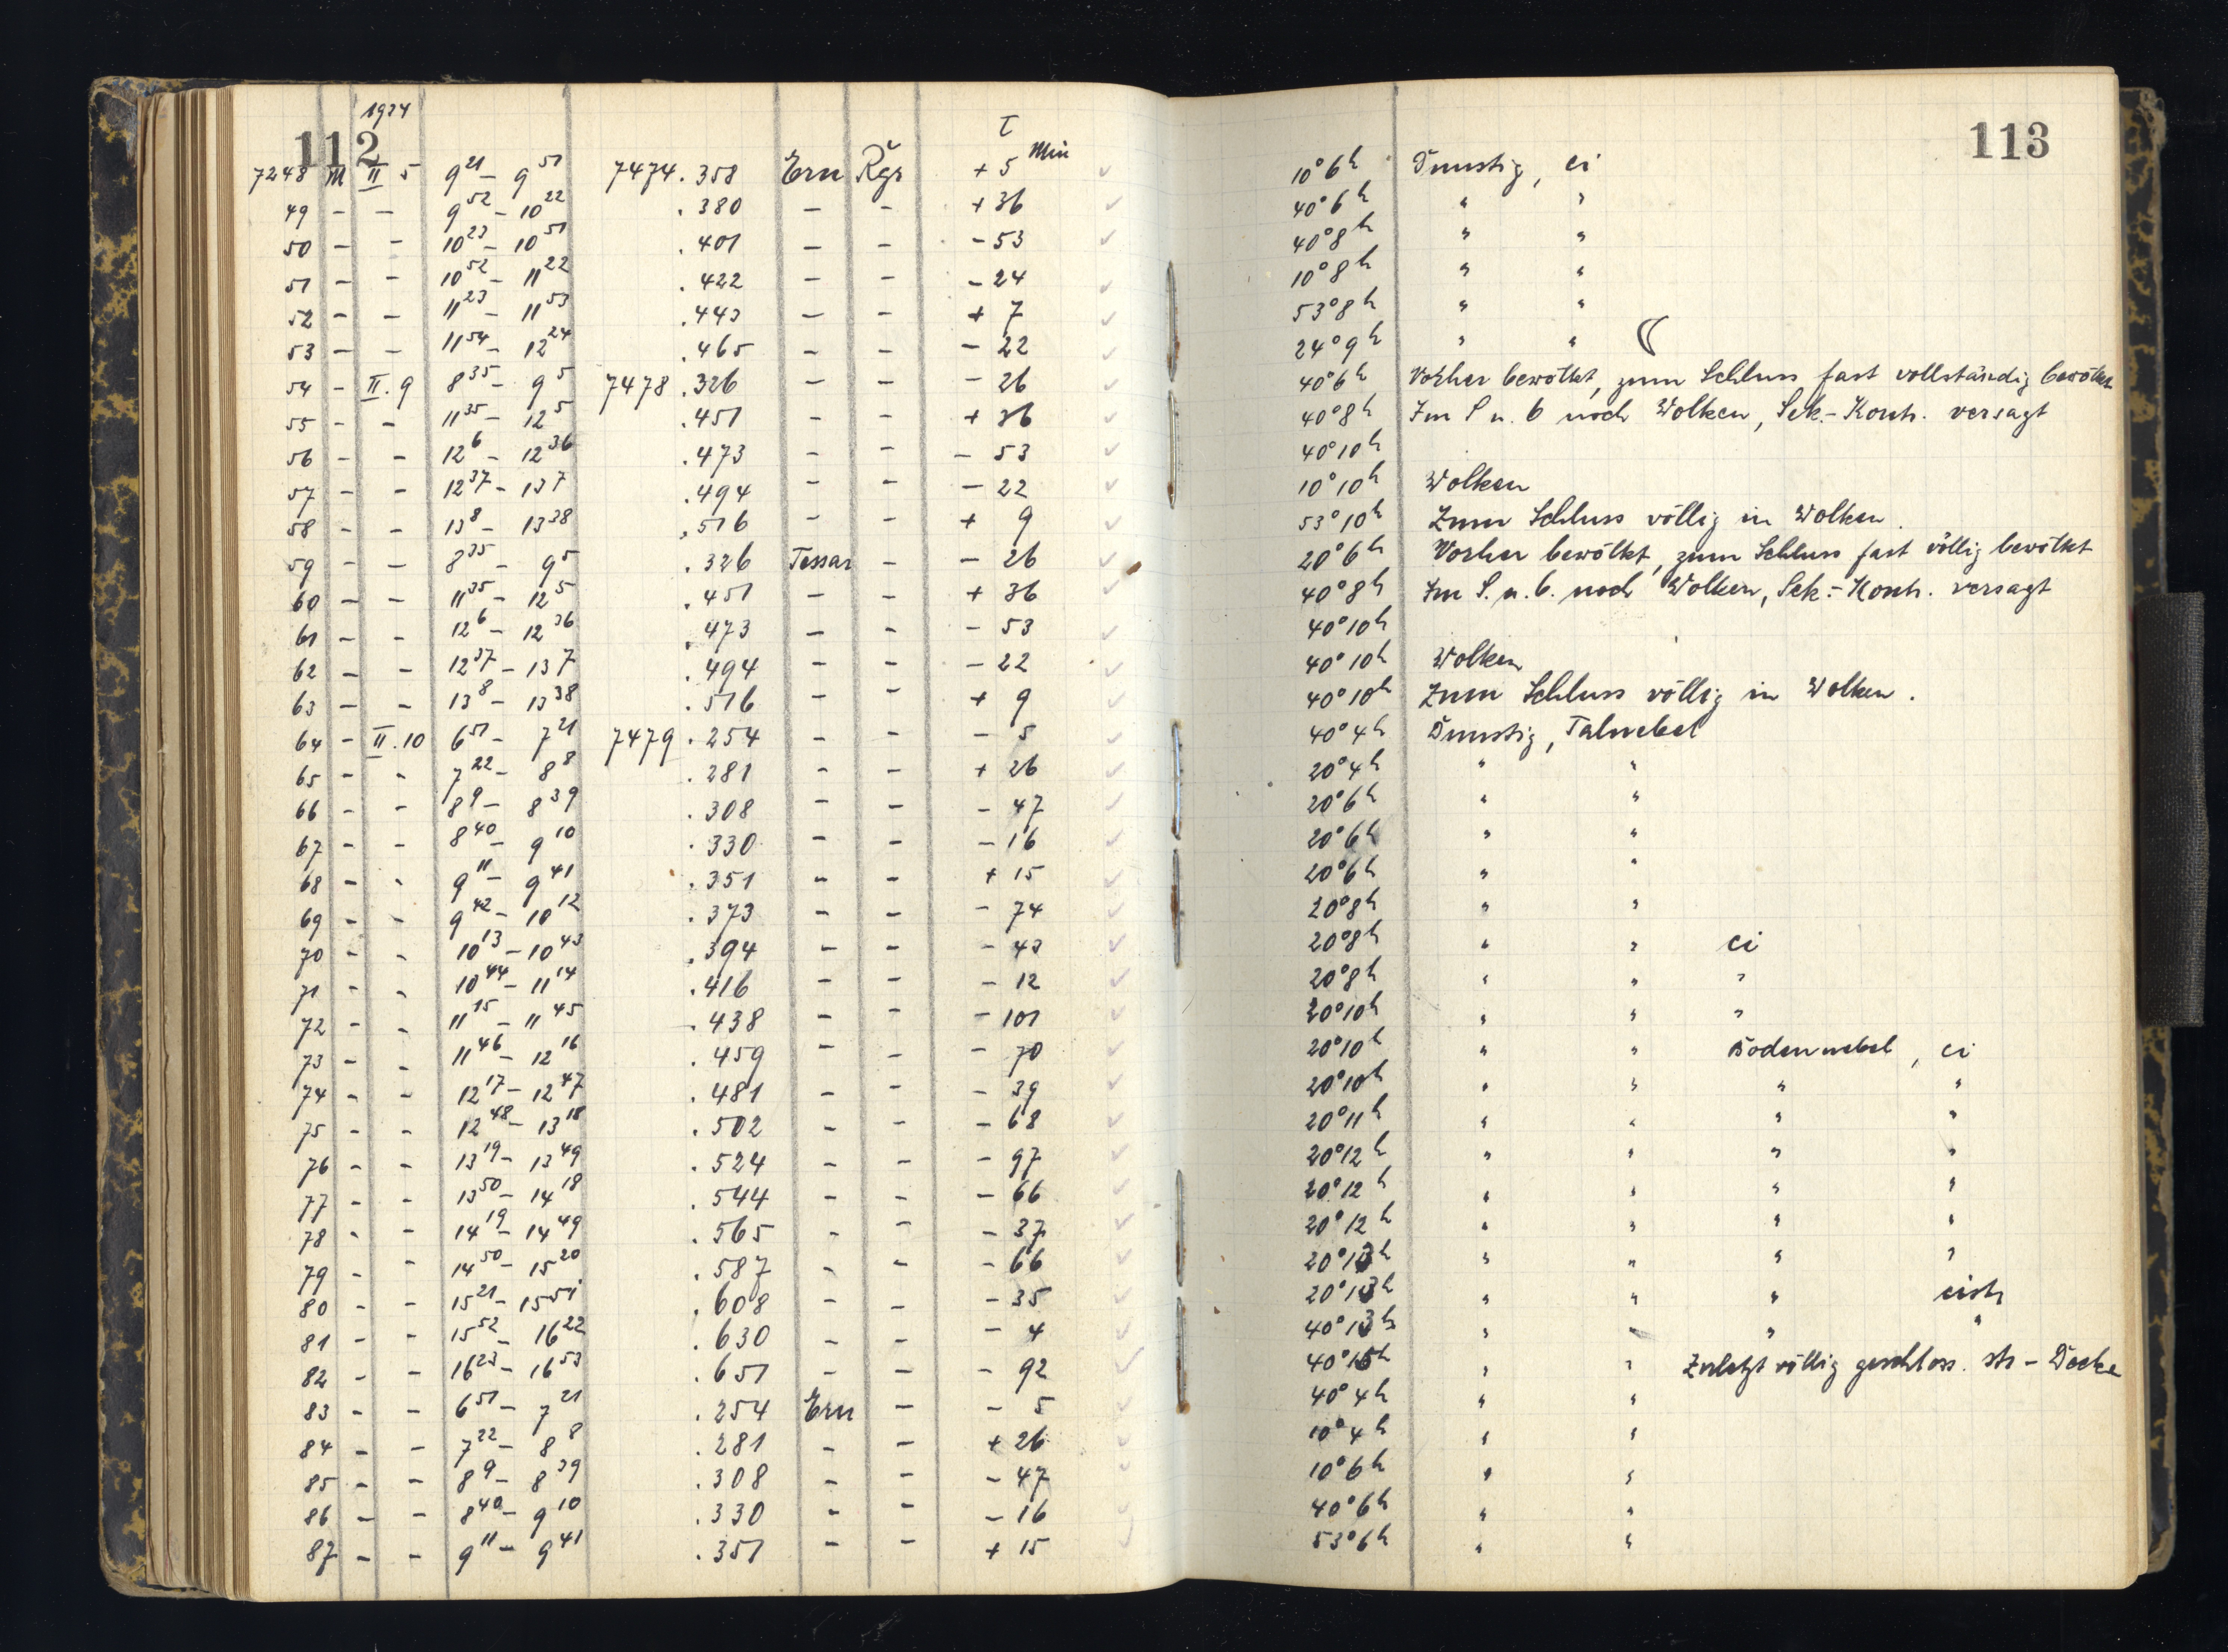 112 1934 113
τ Min
7248 M II 5 9²¹ – 9⁵¹ 7474.358 Ern Rgr + 5 10° 6ʰ Dunstig, ci
49 – – 9⁵² – 10²² .380 – – + 36 40° 6ʰ " "
50 – – 10²³ – 10⁵¹ .401 – – – 53 40° 8ʰ " "
51 – – 10⁵² – 11²² .422 – – – 24 10° 8ʰ " "
52 – – 11²³ – 11⁵³ .443 – – + 7 53° 8ʰ " "
53 – – 11⁵⁴ – 12²⁴ .465 – – – 22 24° 9ʰ " " ☾
54 – II. 9 8³⁵ – 9⁵ 7478.326 – – – 26 40° 6ʰ Vorher bewölkt, zum Schluss fast vollständig bewölkt
55 – – 11³⁵ – 12⁵ .451 – – + 36 40° 8ʰ Im S u. b noch Wolken, Sek.-Kontr. versagt
56 – – 12⁶ – 12³⁶ .473 – – – 53 40° 10ʰ
57 – – 12³⁷ – 13⁷ .494 – – – 22 10° 10ʰ Wolken
58 – – 13⁸ – 13³⁸ .516 – – + 9 53° 10ʰ Zum Schluss völlig in Wolken.
59 – – 8³⁵ – 9⁵ .326 Tessar – – 26 20° 6ʰ Vorher bewölkt, zum Schluss fast völlig bewölkt
60 – – 11³⁵ – 12⁵ .451 – – + 36 40° 8ʰ Im S. u. b. noch Wolken, Sek.-Kontr. versagt
61 – – 12⁶ – 12³⁶ .473 – – – 53 40° 10ʰ
62 – – 12³⁷ – 13⁷ .494 – – – 22 40° 10ʰ Wolken
63 – – 13⁸ – 13³⁸ .516 – – + 9 40° 10ʰ Zum Schluss völlig in Wolken.
64 – II. 10 6⁵¹ – 7²¹ 7479.254 – – – 5 40° 4ʰ Dunstig, Talnebel
65 – – 7²² – 8⁸ .281 – – + 26 20° 4ʰ " "
66 – – 8⁹ – 8³⁹ .308 – – – 47 20° 6ʰ " "
67 – – 8⁴⁰ – 9¹⁰ .330 – – – 16 20° 6ʰ " "
68 – – 9¹¹ – 9⁴¹ .351 – – + 15 20° 6ʰ " "
69 – – 9⁴² – 10¹² .373 – – – 74 20° 8ʰ " "
70 – – 10¹³ – 10⁴³ .394 – – – 43 20° 8ʰ " " ci
71 – – 10⁴⁴ – 11¹⁴ .416 – – – 12 20° 8ʰ " " "
72 – – 11¹⁵ – 11⁴⁵ .438 – – – 101 20° 10ʰ " " "
73 – – 11⁴⁶ – 12¹⁶ .459 – – – 70 20° 10ʰ " " Bodennebel, ci
74 – – 12¹⁷ – 12⁴⁷ .481 – – – 39 20° 10ʰ " " " "
75 – – 12⁴⁸ – 13¹⁸ .502 – – – 68 20° 11ʰ " " " "
76 – – 13¹⁹ – 13⁴⁹ .524 – – – 97 20° 12ʰ " " " "
77 – – 13⁵⁰ – 14¹⁸ .544 – – – 66 20° 12ʰ " " " "
78 – – 14¹⁹ – 14⁴⁹ .565 – – – 37 20° 12ʰ " " " "
79 – – 14⁵⁰ – 15²⁰ .587 – – – 66 20° 13ʰ " " " "
80 – – 15²¹ – 15⁵¹ .608 – – – 35 20° 13ʰ " " " cistr
81 – – 15⁵² – 16²² .630 – – – 4 40° 13ʰ " " " "
82 – – 16²³ – 16⁵³ .651 – – – 92 40° 15ʰ " " Zuletzt völlig geschloss. str-Decke
83 – – 6⁵¹ – 7²¹ .254 Ern – – 5 40° 4ʰ " "
84 – – 7²² – 8⁸ .281 – – + 26 10° 4ʰ " "
85 – – 8⁹ – 8³⁹ .308 – – – 47 10° 6ʰ " "
86 – – 8⁴⁰ – 9¹⁰ .330 – – – 16 40° 6ʰ " "
87 – – 9¹¹ – 9⁴¹ .351 – – + 15 53° 6ʰ " "